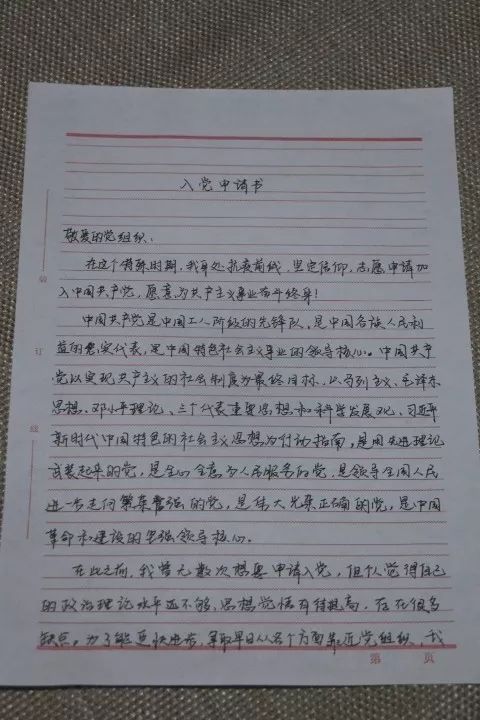 入党申请书
敬爱的党组织:
在这个特殊时期,我身处抗疫前线,坚定信仰,志愿申请加
入中国共产党,愿意为共产主义事业奋斗终身!
中国共产党是中国工人阶级的先锋队,是中国各族人民利
益的忠实代表,是中国特色社会主义事业的领导核心。中国共产
党以实现共产主义的社会制度为最终目标,以马列主义、毛泽东
思想、邓小平理论、三个代表重要思想和科学发展观、习近平
新时代中国特色的社会主义思想为行动指南,是用先进理论
武装起来的党,是全心全意为人民服务的党,是领导全国人民
进一步走向繁荣富强的党,是伟大光荣正确的党,是中国
革命和建设的坚强领导核心。
在此之前,我曾无数次想要申请入党,但似觉得自己
的政治理论水平还不够,思想觉悟有待提高,存在很多
缺点。为了能更快进步,争取早日从各个方面靠近党组织,我
装
订
线
第 页